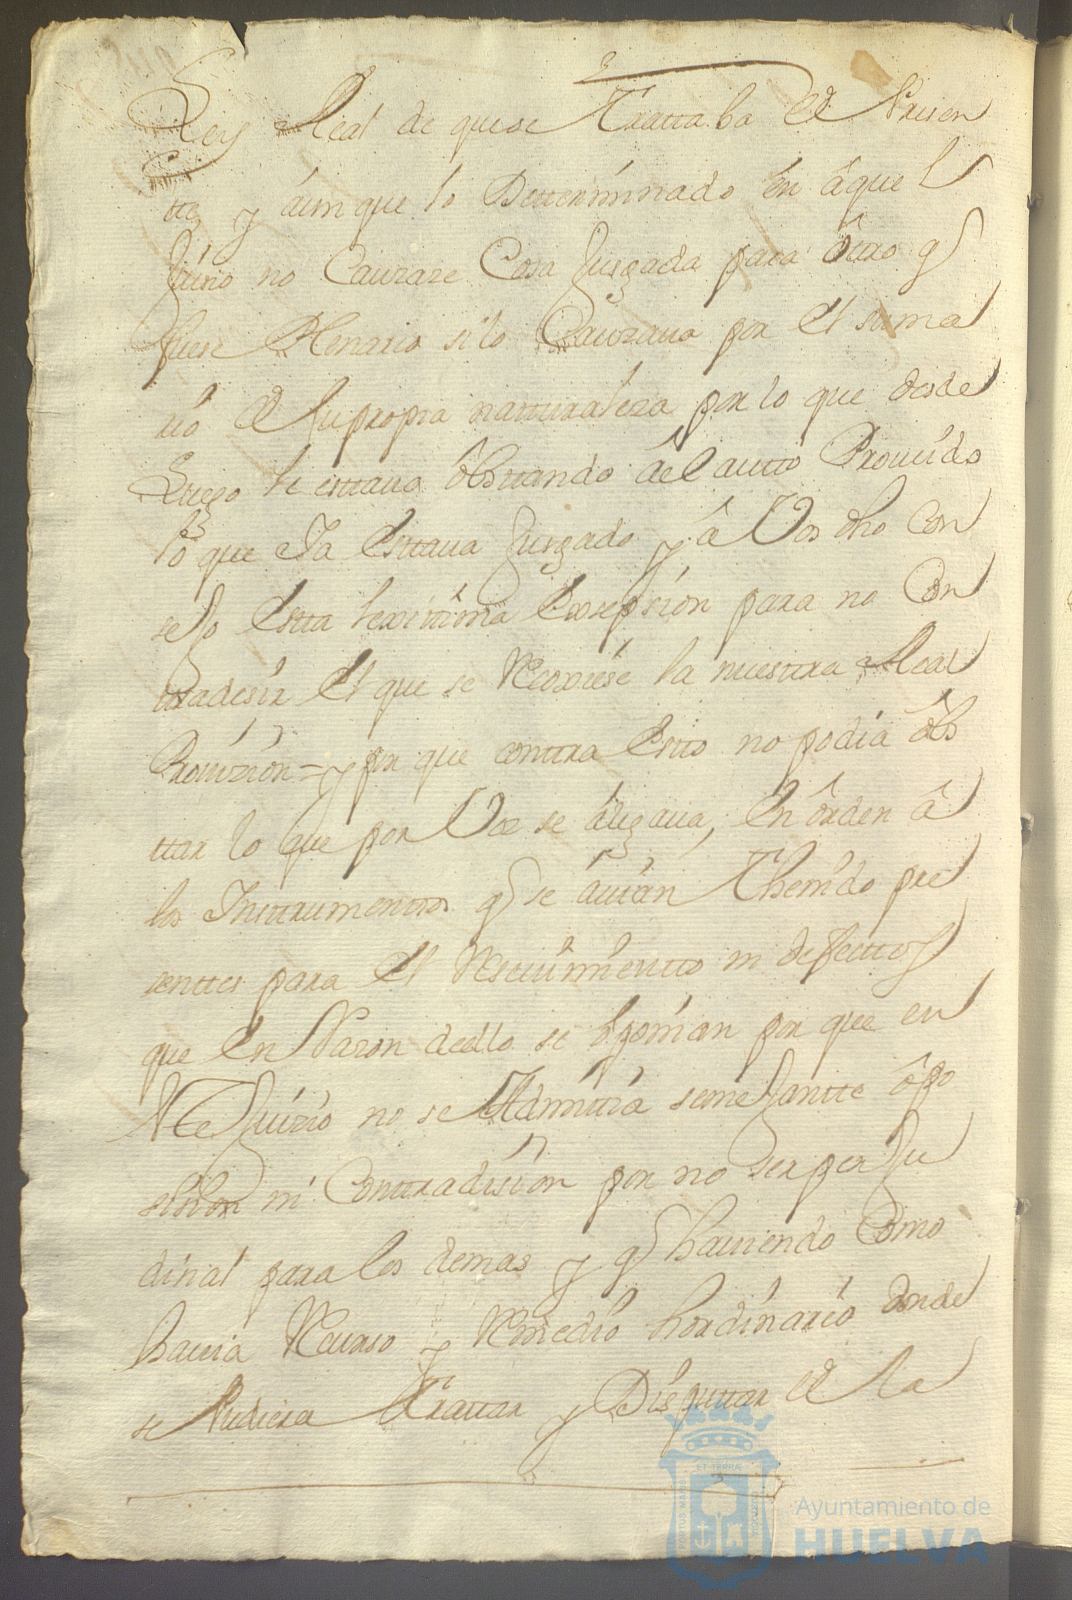 Ley Real de que se Trattaba El Presen
tte y áunque lo Detterminado en âquel
Juizio no Cauzare Cosa Juzgada para ôtro q
fuese Plenario si lo Cauzaua por El suma
rio de su propia natturaleza por lo que desde
Luego le esttaua ôbsttando âel autto Proueido
lo que Ja Esttaua Juzgado y â Vos dho Con
sejo Estta lexittima Exsepsion para no Con
ttradesir El que se Recoxiese la nuestra Real
Prouizion = y por que conttra Estto no podia ôbs
ttar lo que por Vos se alegaua, En ôrden â
los Insttrumenttos q se auian Thenido pre
senttes para El Resciuimientto ni defecttos
que En Razon de ello se oponian por que en
tte Juizio no se Admittia semejantte ôpo
sision ni Conttradision por no ser perju
dinal para los demas y q hauiendo Como
hauia Recurso y Remedio hordinario donde
se Pudiera Trattar y Disputtar de la
Ayuntamiento de
HUELVA